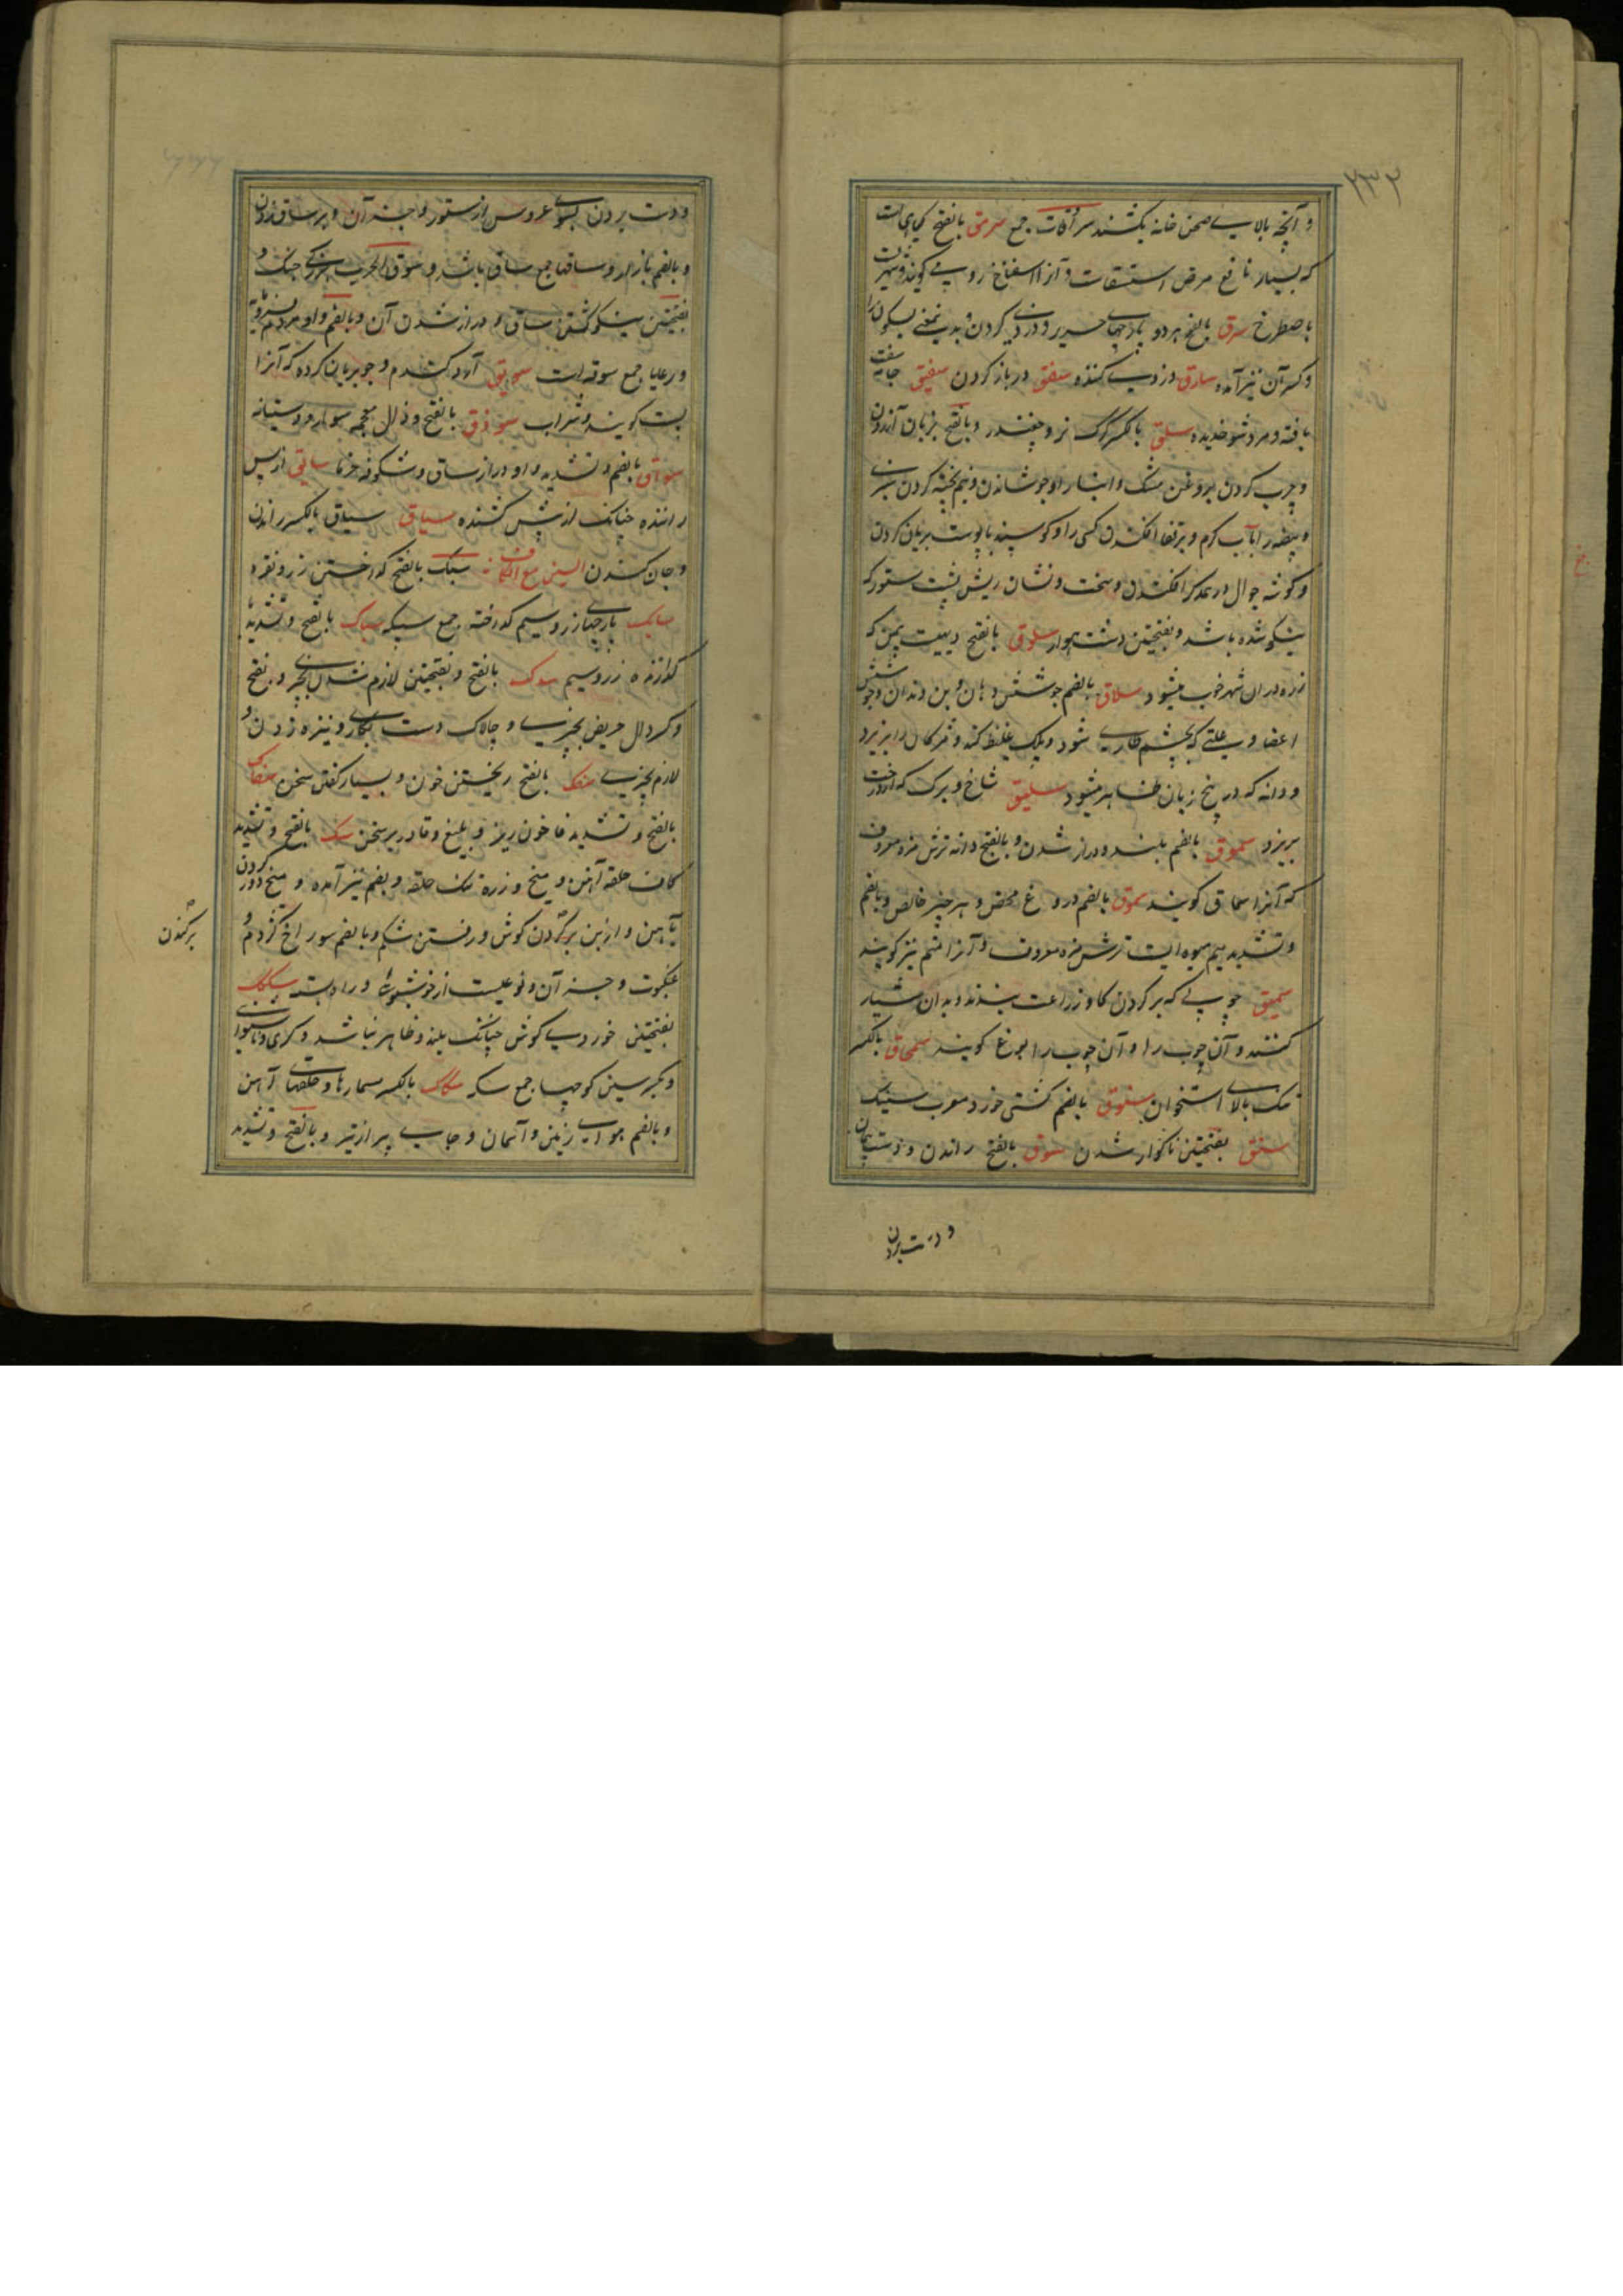 ۲۳۲
و آنچه بالای صحن خانه بکشند سرادقات جمع سرمق بالفتح گیاهی است
که بسیار نافع مرض استسقاست و آنرا اسفناخ رومی گویند و شهریست
باصطرخ سرق بالفتح هردو پارچهای حریر و دزدی کردن و بدین معنی بسکون را
و کسر آن نیز آمده سارق دزدی کننده سفق در باز کردن سفیق جامه سفت
بافته و مرد شوخ دیده سلق بالکسر گرگ نر و چغندر و بالفتح بزبان آزردن
و چرب کردن بروغن مشک و انبار را و جوشاندن و نیم پخته کردن سبزی
و بیضه را بآب گرم و برقفا افکندن کسی را و گوسپند با پوست بریان کردن
و گوشه جوال در یکدیگر افکندن و سخت و نشان ریش پشت ستور که
نیکو شده باشد و بفتحتین دشت هموار سلوقی بالفتح دهیست بیمن که
زره دران شهر خوب میشود سلاق بالضم جوشش دهان و بن دندان و جوشش
اعضا و علتی که بچشم طاری شود و پلک غلیظ کند و مژگان را بریزد
و دانه که در بیخ زبان ظاهر میشود سلیق شاخ و برگ که از درخت
بریزد سموق بالضم بلند و دراز شدن و بالفتح دانه ترش مزه معروف
که آنرا سماق گویند سموق بالضم دروغ محض و هر چیز خالص و بالضم
و تشدید میم میوه ایست ترش مزه معروف و آنرا نیز گویند
سمیق چوبی که بر گردن گاو زراعت بندند و بدان شیار
کنند و آن چوب را و آن چوب را یوغ گویند سمحاق بالکسر
تنک بالای استخوان سنوق بالضم کشتی خورد معرب سنبک
سنق بفتحتین ناگوار شدن سوق بالفتح راندن و دست پیمان
و دست بردن
و دست بردن بسوی عروس از ستور و جز آن و بر ساق زدن
و بالضم بازار و ساقها جمع ساق باشد و سوق الحرب بزرگی جنگ و
بفتحتین نیکو گشتن ساق و دراز شدن آن و بالضم و او مردم فرومایه
و رعایا جمع سوقه است سویق آرد گندم و جو بریان کرده که آنرا
پست گویند و شراب سوذق بالفتح و ذال معجمه سوار و دستیانه
سواق بالضم و تشدید واو دراز ساق و شکوفه خرما سائق از پس
راننده چنانک از پیش کشنده سیاق سیاق بالکسر راندن
و جان کندن السین مع الکاف سبک بالفتح گداختن زر و نقره
سبایک پارچهای زر و سیم گداخته جمع سبیکه سباک بالفتح و تشدید با
گدازنده زر و سیم سدک بالفتح و بفتحتین لازم شدن بچیزی و بفتح
و کسر دال حریص بچیزی و چالاک دست بکاری و نیزه زدن و
لازم بچیزی سفک بالفتح ریختن خون و بسیار گفتن سخن سفاک
بالفتح و تشدید فا خون ریز و بلیغ و قادر بر سخن سک بالفتح و تشدید
کاف حلقه آهن و میخ و زره تنک حلقه و بضم نیز آمده و میخ دوز کردن
بآهن و از بن برکندن گوش و رفتن شکم و بالضم سوراخ گژدم و
برکندن
عنکبوت و جز آن و نوعیست از خوشبوئی و راه بسته سکک
بفتحتین خوردی گوش چنانک بلند و ظاهر نباشد و کری و ناشنوائی
و بکسر سین کوچها جمع سکه سکاک بالکسر مسمارها و حلقهای آهن
و بالضم هوای زمین و آسمان و جای پر از تیر و بالفتح و تشدید